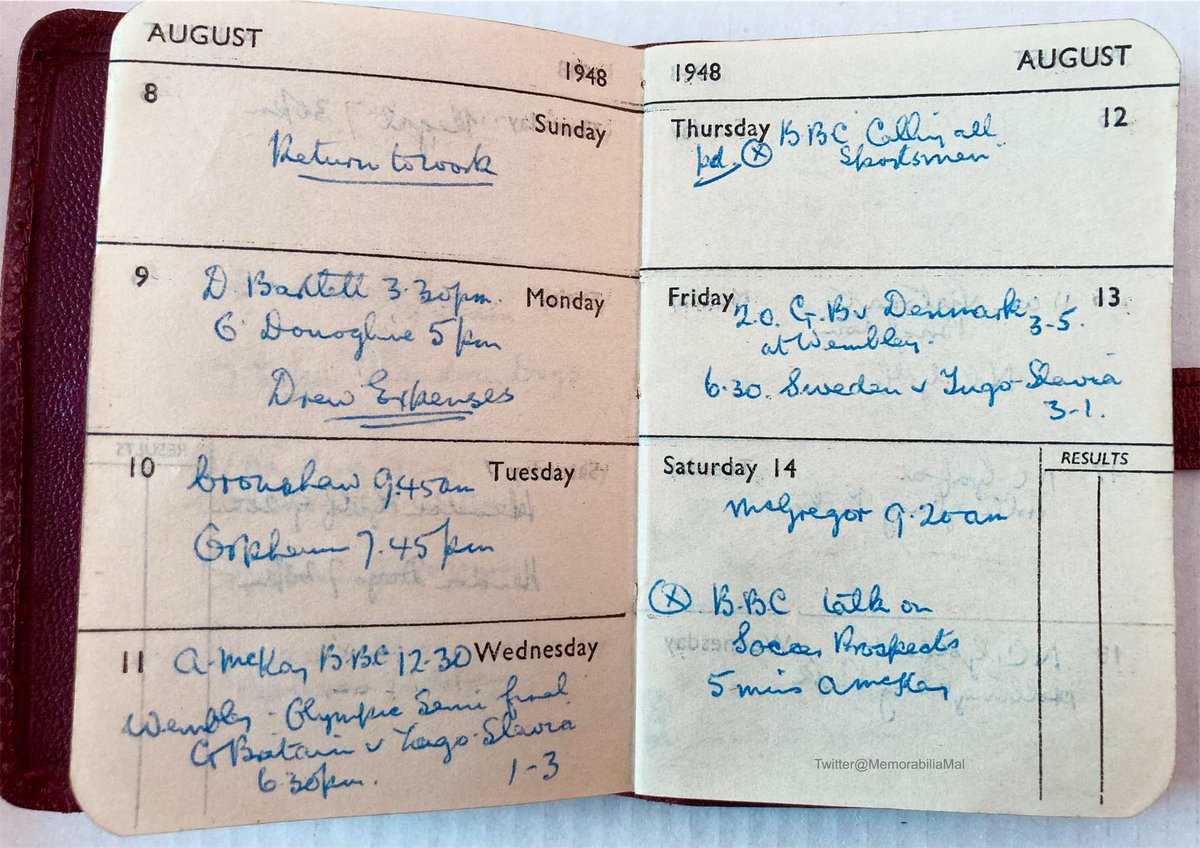 AUGUST
1948
8
Sunday
Return to work
9
Monday
D Bartlett 3.30pm.
G Donoghue 5pm
Drew Expenses
10
Tuesday
Cronshaw 9.45am
Orpheum 7.45pm
11
Wednesday
A. McKay BBC 12-30
Wembley - Olympic Semi final
G Britain v Yugo-Slavia
6.30pm. 1-3
1948
AUGUST
Thursday
12
pd. X BBC Calling all
Sportsmen.
Friday
13
2.0. G.B v Denmark 3-5.
at Wembley.
6.30. Sweden v Yugo-Slavia
3-1.
Saturday 14
RESULTS
McGregor 9.20am
X B.BC talk on
Soccer Prospects
5 mins A McKay
Twitter@MemorabiliaMal